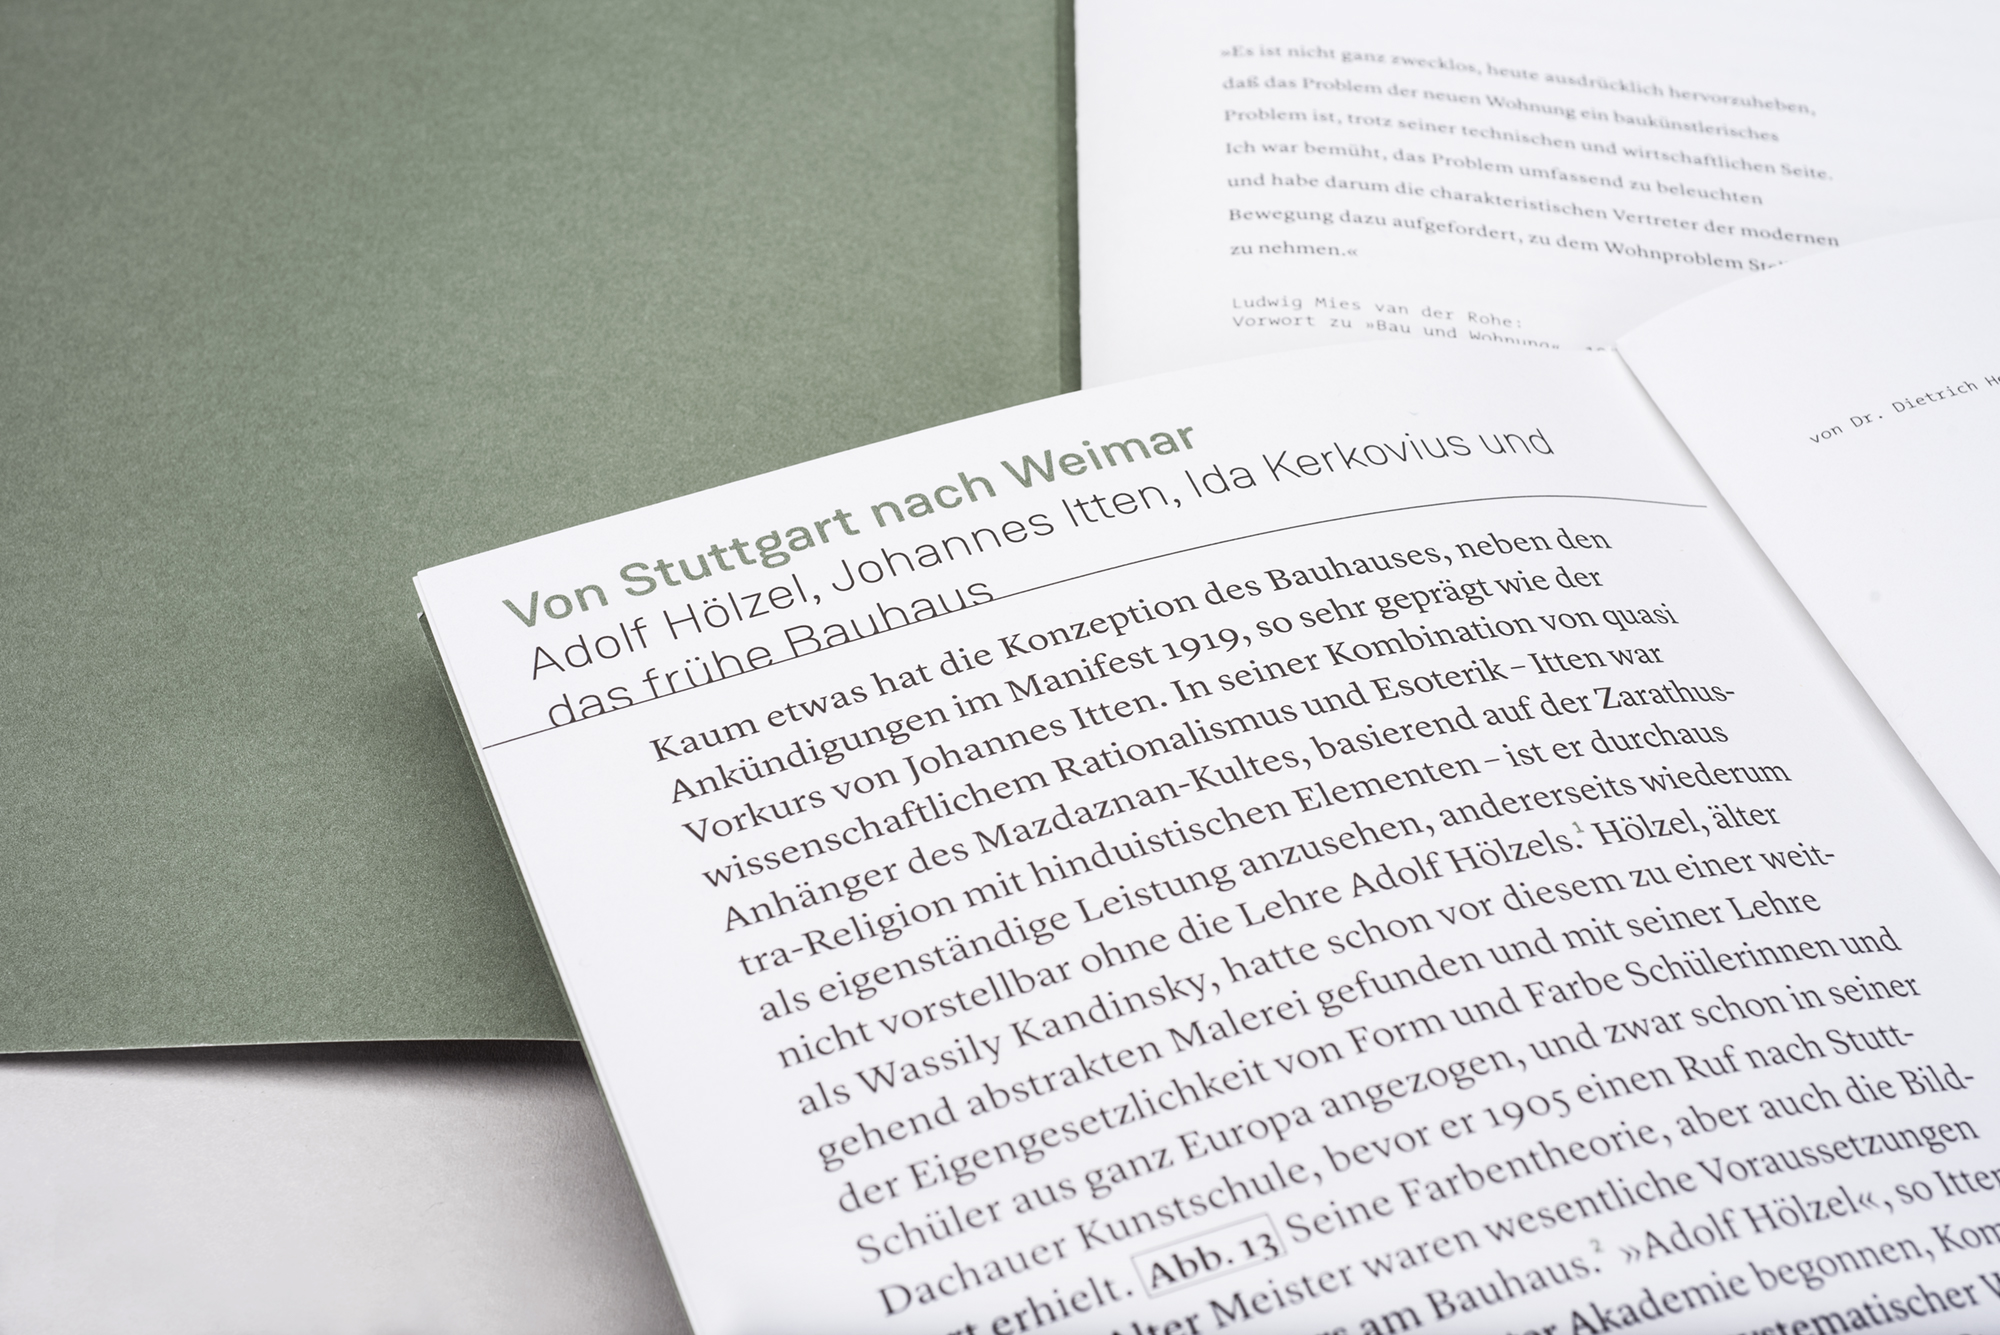 »Es ist nicht ganz zwecklos, heute ausdrücklich hervorzuheben,
daß das Problem der neuen Wohnung ein baukünstlerisches
Problem ist, trotz seiner technischen und wirtschaftlichen Seite.
Ich war bemüht, das Problem umfassend zu beleuchten
und habe darum die charakteristischen Vertreter der modernen
Bewegung dazu aufgefordert, zu dem Wohnproblem
zu nehmen.«
Ludwig Mies van der Rohe:
Vorwort zu »Bau und Wohnung«
von Dr. Dietrich
Von Stuttgart nach Weimar
Adolf Hölzel, Johannes Itten, Ida Kerkovius und
das frühe Bauhaus
Kaum etwas hat die Konzeption des Bauhauses, neben den
Ankündigungen im Manifest 1919, so sehr geprägt wie der
Vorkurs von Johannes Itten. In seiner Kombination von quasi
wissenschaftlichem Rationalismus und Esoterik – Itten war
Anhänger des Mazdaznan-Kultes, basierend auf der Zarathus-
tra-Religion mit hinduistischen Elementen – ist er durchaus
als eigenständige Leistung anzusehen, andererseits wiederum
nicht vorstellbar ohne die Lehre Adolf Hölzels.¹ Hölzel, älter
als Wassily Kandinsky, hatte schon vor diesem zu einer weit-
gehend abstrakten Malerei gefunden und mit seiner Lehre
der Eigengesetzlichkeit von Form und Farbe Schülerinnen und
Schüler aus ganz Europa angezogen, und zwar schon in seiner
Dachauer Kunstschule, bevor er 1905 einen Ruf nach Stutt-
erhielt. Abb. 13 Seine Farbentheorie, aber auch die Bild-
Alter Meister waren wesentliche Voraussetzungen
am Bauhaus.² »Adolf Hölzel«, so Itten
Akademie begonnen,